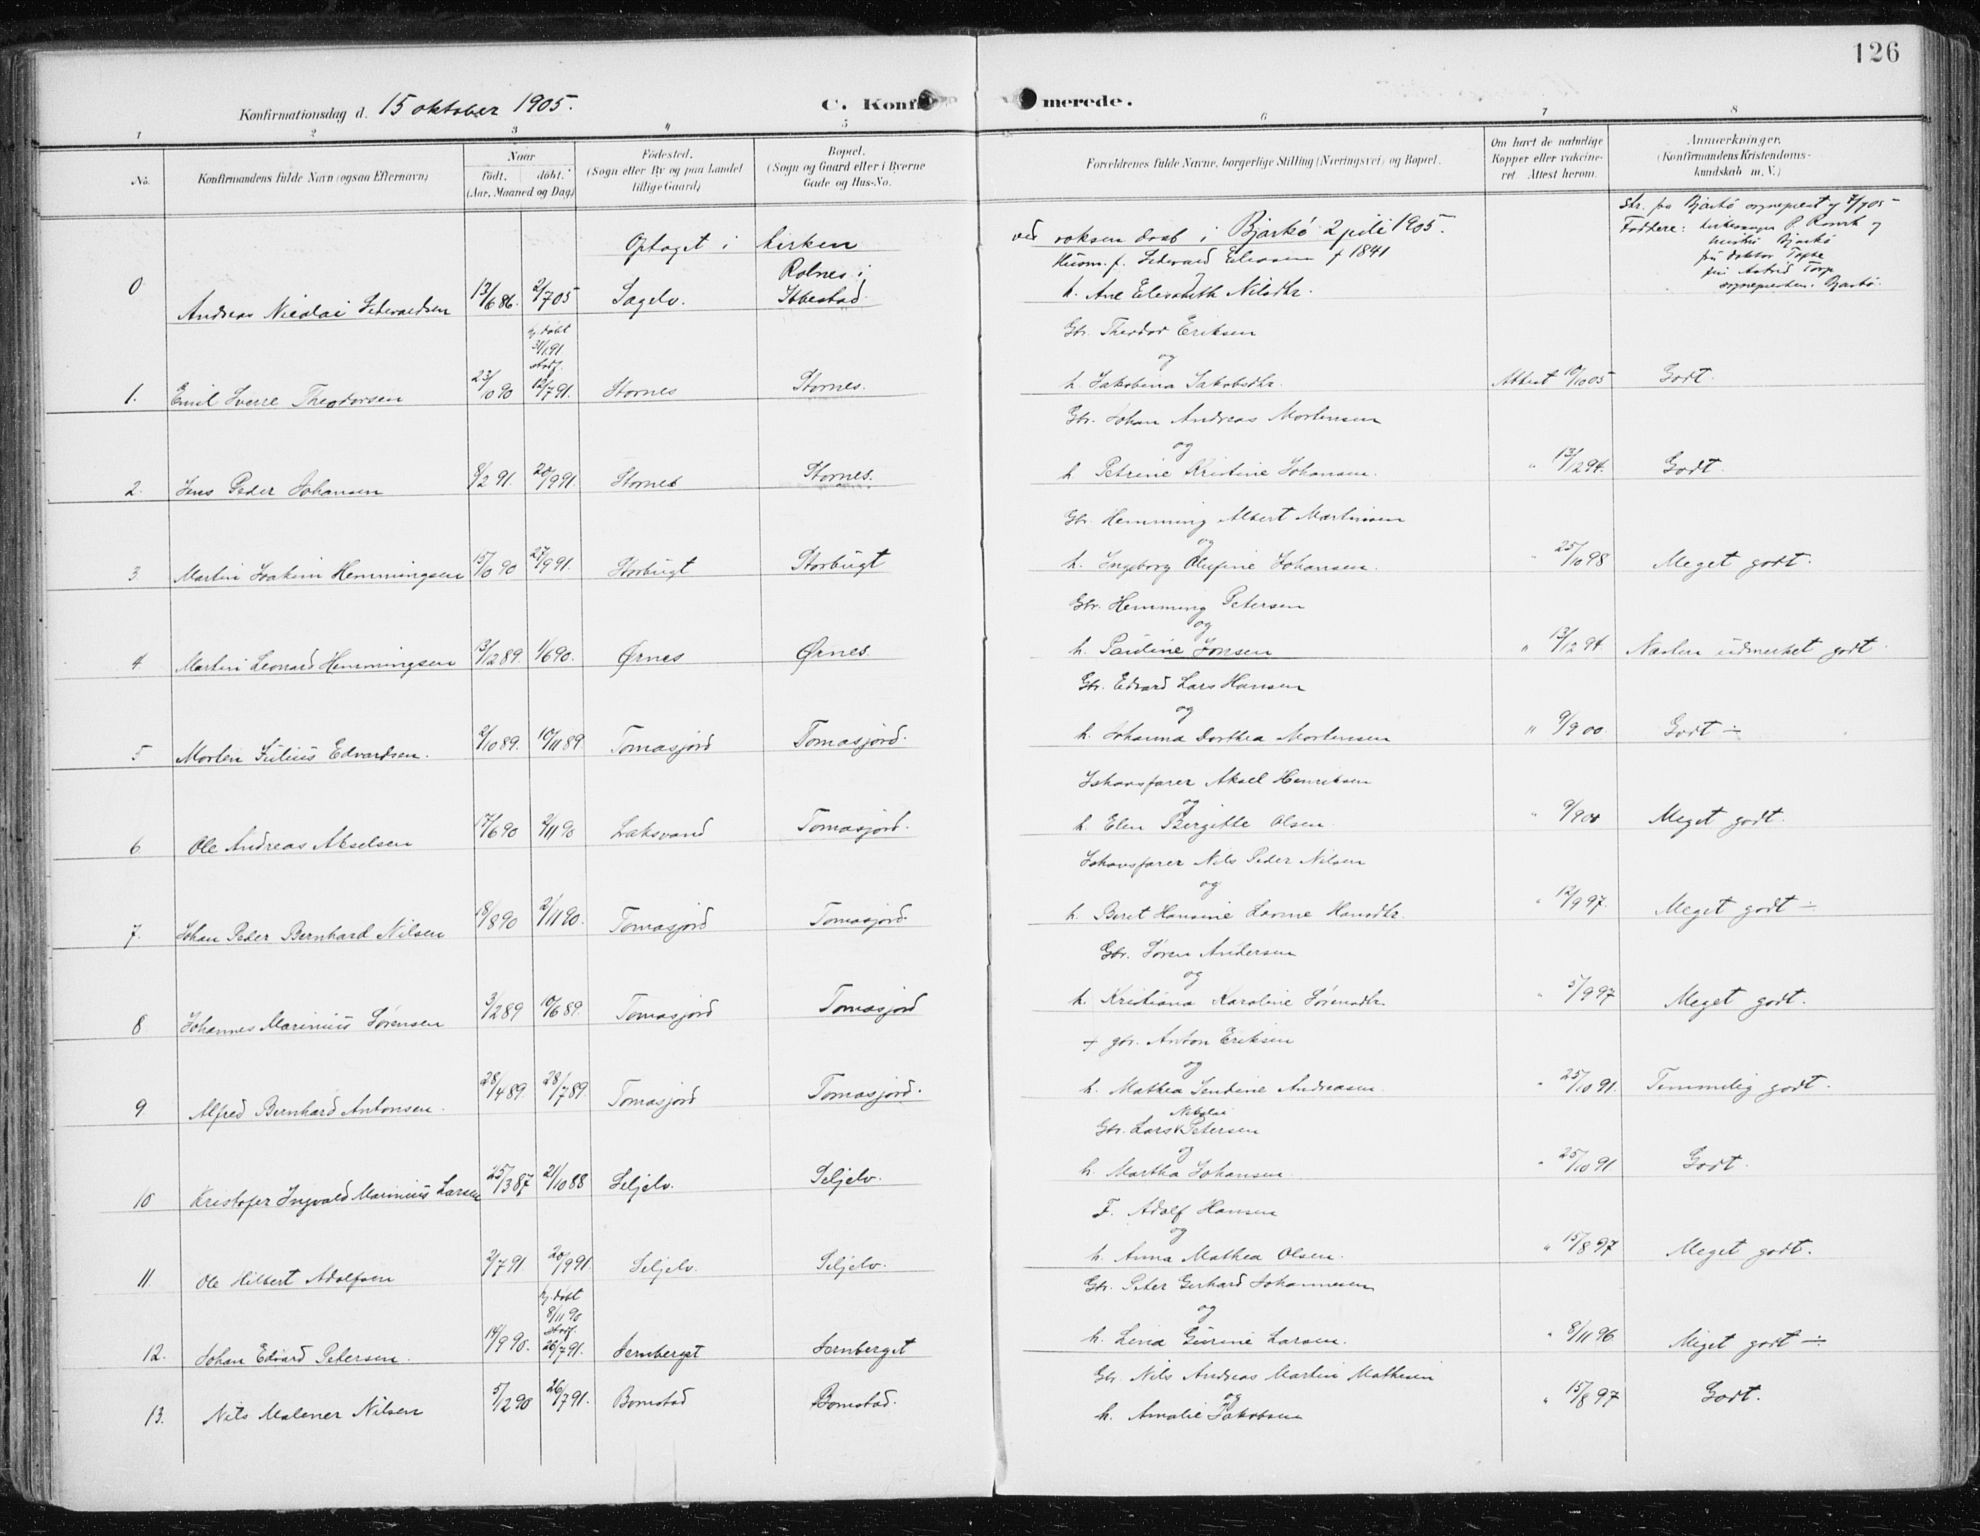 126
Konfirmationsdag d. 15 oktober 1905.
C. Konfirmerede.
1 2 3 4 5 6 7 8
No.
Konfirmandens fulde Navn (ogsaa Efternavn)
Naar
födt. döbt.
(Aar, Maaned og Dag)
Födested.
(Sogn eller By og paa Landet
tillige Gaard)
Bopæl.
(Sogn og Gaard eller i Byerne
Gade og Hus-No.
Forældrenes fulde Navne, borgerlige Stilling (Næringsvei) og Bopæl.
Om havt de naturlige
Kopper eller vakcine-
ret Attest herom.
Anmærkninger.
(Konfirmandens Kristendoms-
kundskab m. V.)
Optaget i kirken ved voksen daab i Bjarkö 2 juli 1905.
Skr. fra Bjarkö sogneprest 7/7 05
Faddere: kirkesanger P. og
hustru Bjarkö
fru doktor
frü Astrid Torp
sognepresten i Bjarkö.
Husm. f. 1841
0 Andreas Nicolai 13/6 86 2/7 05 Sagelv. Rolnes i
Ibbestad. h. Ane Elisabeth Nilsdtr.
Gbr. Theodor Eriksen
hj. döbt
3/1 91
stadf.
og
1. Emil Sverre Theodorsen 23/10 90 12/7 91. Stornes Stornes. h. Jakobina Jakobsdtr. Attest 10/10 05 Godt.
Gbr. Johan Andreas Mortensen
og
2. Jens Peder Johansen 8/2 91 20/9 91. Stornes Stornes. h. Petrine Kristine Johansen. " 13/12 94. Godt.
Gbr. Hemming Albert Martinsen
og
3. Martin Joakim Hemmingsen 15/10 90 27/9 91. Storbugt Storbugt h. Ingeborg Olufine Johansen. " 25/10 98 Meget godt.
Gbr. Hemming Petersen
og
4 Martin Leonard Hemmingsen 13/12 89. 1/6 90. Ørnes Ørnes. h. Pauline Jonsen " 13/12 94. Næsten udmerket godt.
Gbr. Edvard Lars Hansen
og
5 Morten Julius Edvardsen. 2/10 89. 10/11 89. Tomasjord Tomasjord. h. Johanna Dorthea Mortensen " 9/9 00 Godt ÷
Ishavsfarer Aksel Henriksen
og
6 Ole Andreas Akselsen 17/6 90 2/11 90 Laksvand Tomasjord. h. Elen Birgitte Olsen. " 9/9 00 Meget godt.
Ishavsfarer Nils Peder Nilsen
og
7. Johan Peder Bernhard Nilsen 18/8 90 2/11 90. Tomasjord Tomasjord. h. Beret Hansine Hansdtr. " 12/9 97. Meget godt ÷
Gbr. Søren Andersen
og
8 Johannes Marinius Sørensen 3/2 89 10/6 89. Tomasjord Tomasjord h. Kristiana Karoline Sørensdtr. " 5/9 97 Meget godt.
+ gbr. Anton Eriksen
og
9. Alfred Bernhard Antonsen. 28/4 89. 28/7 89. Tomasjord Tomasjord. h. Mathea Sendine Andreasen. " 25/10 91. Temmelig godt.
Nikolai
Gbr. Lars Petersen
og
10 Kristofer Ingvald Marinius Larsen 25/3 87 21/10 88 Seljelv. Seljelv. h. Martha Johansen. " 25/10 91. Godt.
F. Adolf Hansen
og
11. Ole Hilbert Adolfsen 2/7 91 20/9 91. Seljelv. Seljelv. h. Anna Mathea Olsen. " 15/8 97 Meget godt.
Gbr. Peter Gerhard Johannesen
hj. döbt
8/11 90
stadf.
og
12. Johan Edvard Petersen. 14/9 90. 26/7 91. Jernberget Jernberget h. Lina Gurine Larsen. " 8/11 96 Meget godt ÷
Gbr. Nils Andreas Martin Mathisen
og
13. Nils Malener Nilsen 5/12 90 26/7 91. Bomstad Bomstad. h. Amalie Jakobsen " 15/8 97 Godt.